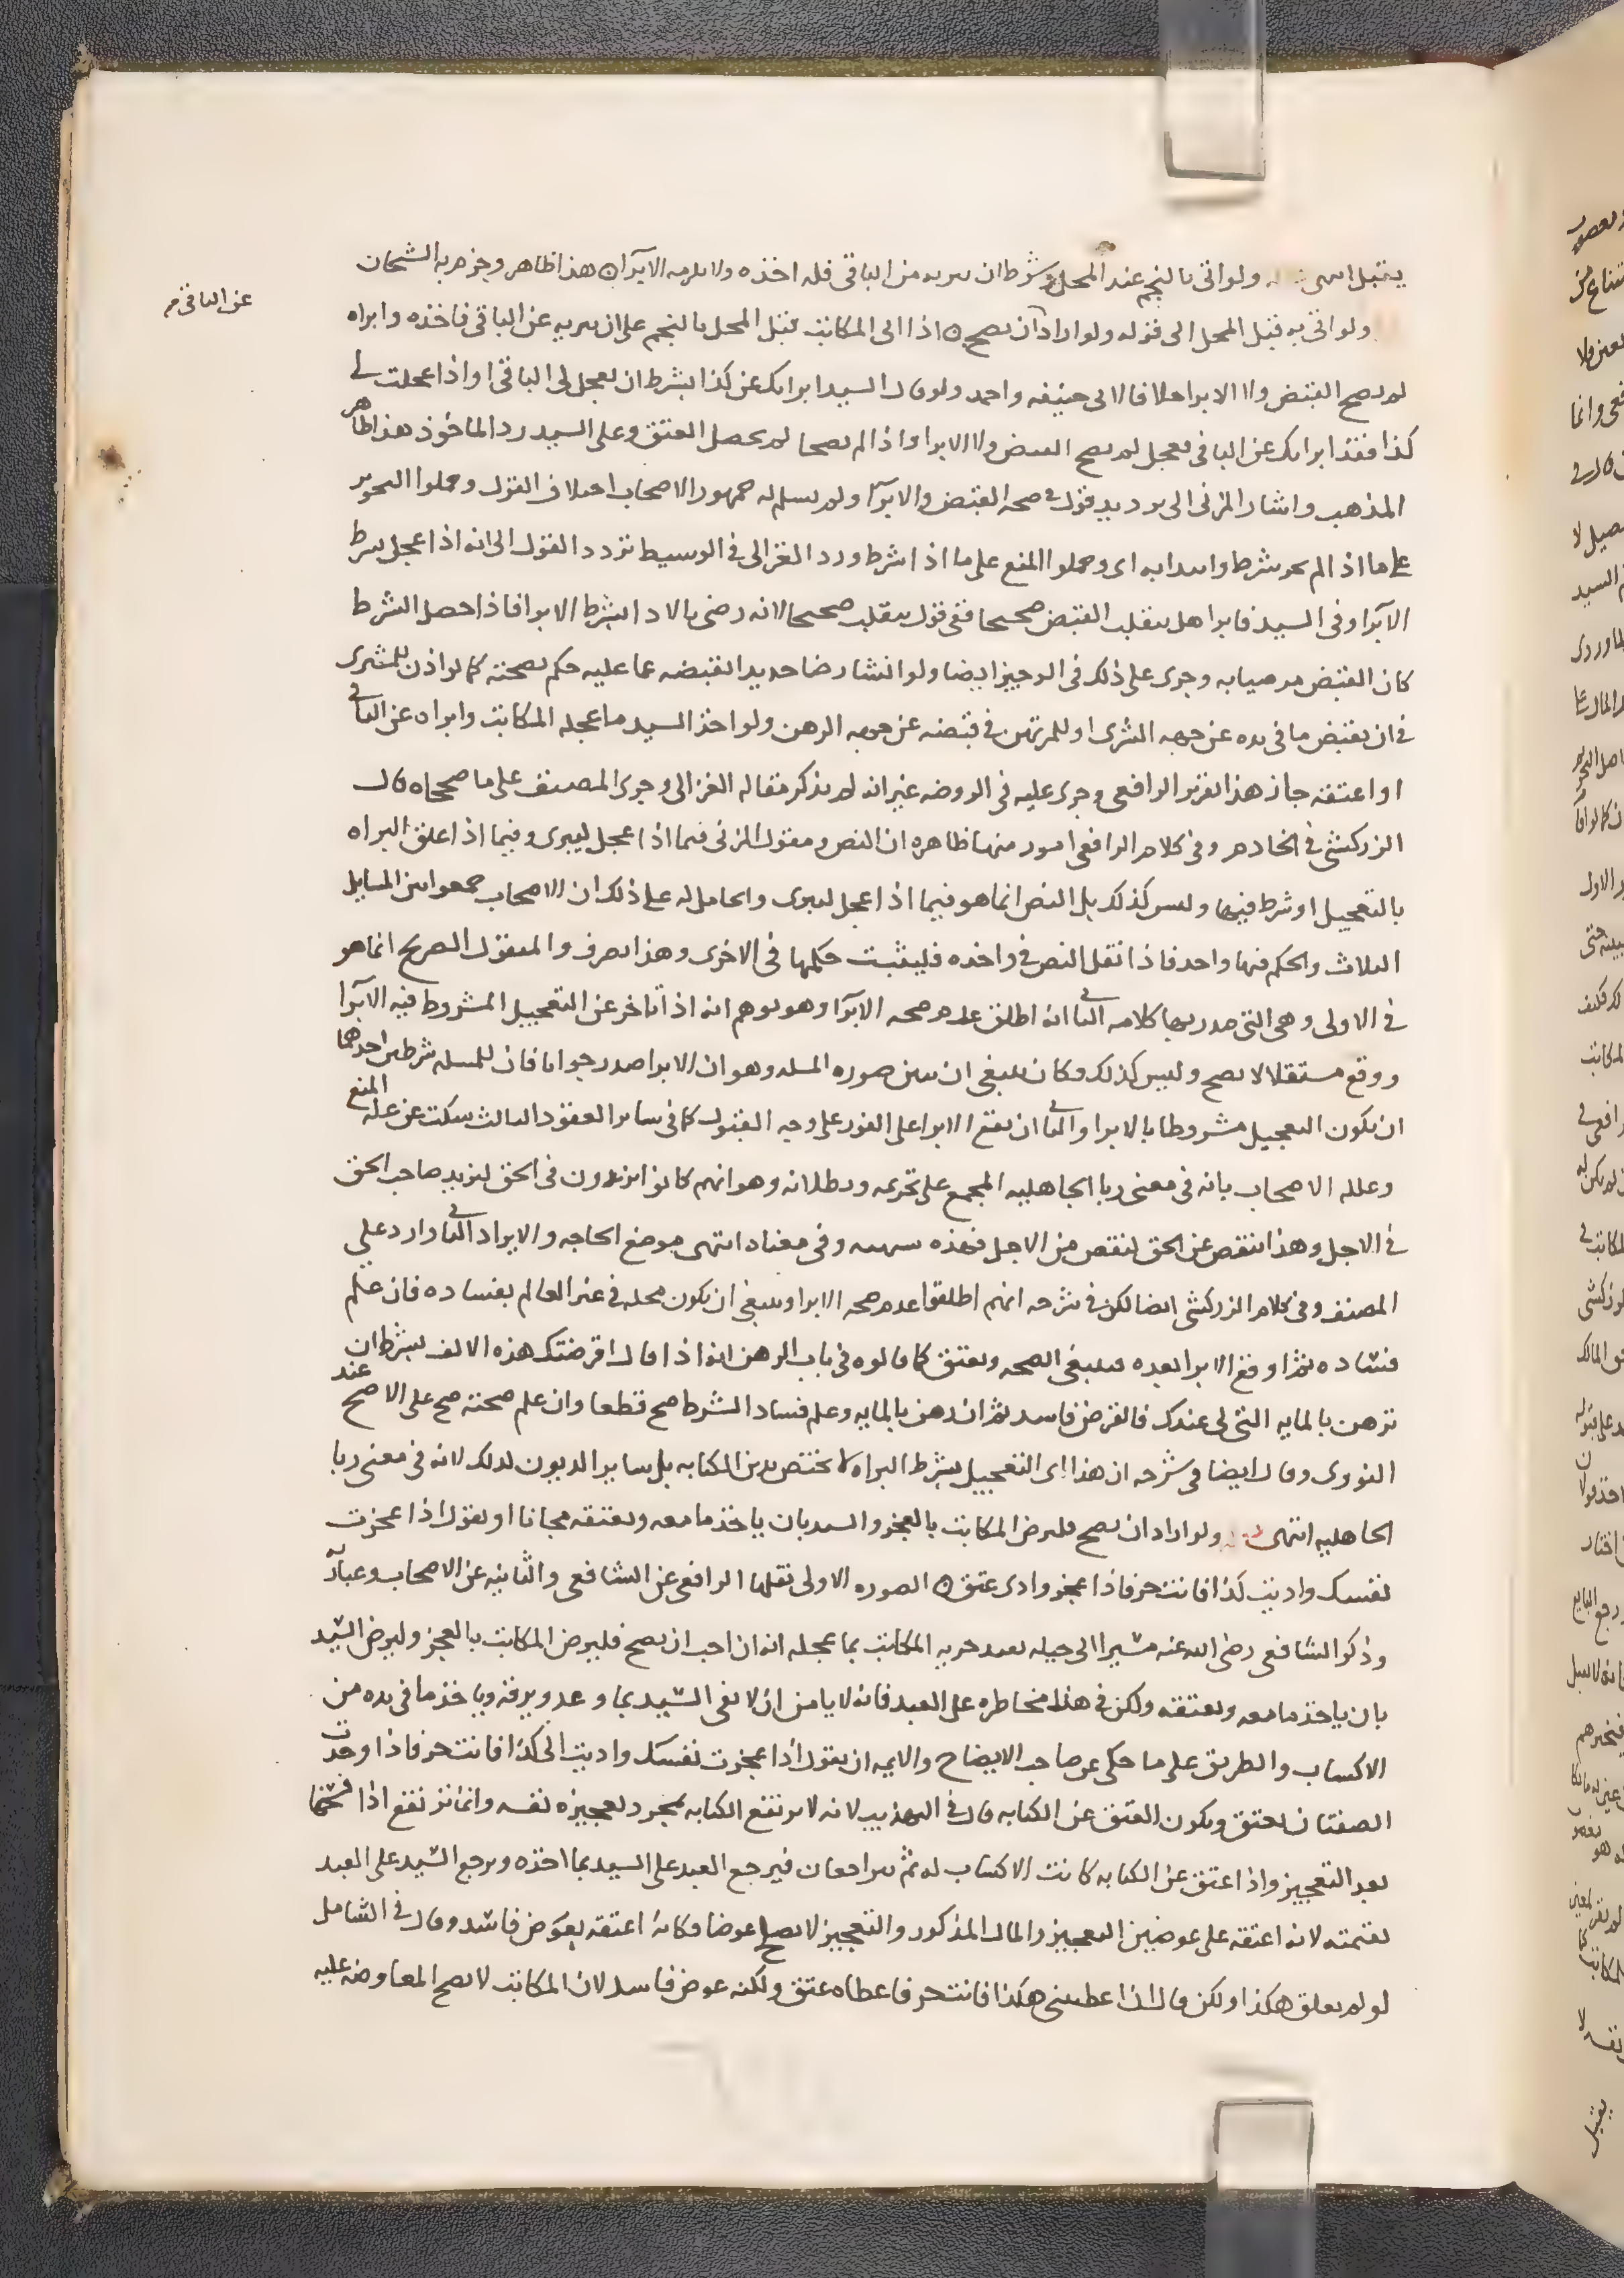 يقبل انتهى ولو اتى بالنجم عند المحل وشرط ان يبريه من الباقي فله اخذه ولا يلزمه الابرآ ن هذا ظاهر وجزم به الشيخان
عن الباقي
ولو اتى به قبل المحل الى قوله ولو اراد ان يصح ن اذا اتى المكاتب قبل المحل بالنجم على ان يبريه عن الباقي فاخذه وابراه
لم يصح القبض ولا الابرا خلافا لابي حنيفه واحمد ولو قال السيد ابراتك عن كذا بشرط ان تعجل لي الباقي او اذا عجلت لي
كذا فقد ابراتك عن الباقي فعجل لم يصح القبض ولا الابرا واذا لم يصحا لم يحصل العتق وعلى السيد رد الماخوذ هذا ظاهر
المذهب واشار المزني الى ترديد قول في صحه القبض والابرآ ولم يسلم له جمهور الاصحاب اختلاف القول وحملوا التجويز
على ما اذا لم يجر شرط وابتدا به اي وحملوا المنع على ما اذا شرط وردد الغزالي في الوسيط تردد القول الى انه اذا عجل بشرط
الابرآ وفي السيد فابرا هل ينقلب القبض صحيحا ففي قول ينقلب صحيحا لانه رضي بالاد بشرط الابرا فاذا حصل الشرط
كان القبض مرضيا به وجرى على ذلك في الوجيز ايضا ولو انشا رضا جديدا بقبضه عما عليه حكم بصحته كما لو اذن للمشتري
في ان يقبض ما في يده عن جهه الشرى او للمرتهن في قبضه عن جهه الرهن ولو اخذ السيد ما عجله المكاتب وابراه عن الباقي
او اعتقه جاز هذا تقرير الرافعي وجرى عليه في الروضه غير انه لم يذكر مقاله الغزالي وجرى المصنف على ما صححاه قال
الزركشي في الخادم وفي كلام الرافعي امور منها ظاهره ان النص ومقول المزني فيما اذا عجل ليبرى وفيما اذا علق البراه
بالتعجيل او شرط فيها وليس كذلك بل النص انما هو فيما اذا عجل ليبرى والحامل له على ذلك ان الاصحاب جمعوا بين المسايل
الثلاث والحكم فيها واحد فاذا نقل النص في واحده فليثبت حكمها في الاخرى وهذا تصرف والمنقول الصريح انما هو
في الاولى وهي التي صدر بها كلامه الثاني انه اطلق عدم صحه الابرآ وهو يوهم انه اذا تاخر عن التعجيل المشروط فيه الابرآ
ووقع مستقلا لا يصح وليس كذلك وكان ينبغي ان يبين صوره المسله وهو ان الابرا صدر جوابا فان للمسله شرطين احدهما
ان يكون التعجيل مشروطا بالابرا والثاني ان يقع الابرا على الفور على وجه القبول كما في ساير العقود الثالث سكت عن عله المنع
وعلله الاصحاب بانه في معنى ربا الجاهليه المجمع على تحريمه وبطلانه وهو انهم كانوا يزيدون في الحق ليزيد صاحب الحق
في الاجل وهذا ينقص عن الحق لينقص من الاجل فهذه وفي معناه انتهى موضع الحاجه والايراد الثاني وارد على
المصنف وفي كلام الزركشي ايضا لكن في شرحه انهم اطلقوا عدم صحه الابرا وينبغي ان يكون محله في غير العالم بفساده فان علم
فساده ثم اوقع الابرا بعده فينبغي الصحه ويعتق كما قالوه في باب الرهن انه اذا قال اقرضتك هذه الالف بشرط ان
ترهن بالمايه التي لي عندك فالقرض فاسد ثم ان رهن بالمايه وعلم فساد الشرط صح قطعا وان علم صحته صح على الاصح عند
النووي وقال ايضا في شرحه ان هذا اي التعجيل بشرط البراه لا يختص بدين المكتابه بل ساير الديون لذلك لانه في معنى ربا
الجاهليه انتهى ولو اراد ان يصح فليرض المكاتب بالعجز والسيد بان ياخذ ما معه ويعتقه مجانا او يقول اذا عجزت
نفسك واديت كذا فانت حر فاذا عجز وادى عتق ن الصوره الاولى نقلها الرافعي عن الشافعي والثانيه عن الاصحاب وعبارته
وذكر الشافعي رضي الله عنه مشيرا الى حيله تفيد حريه المكاتب بما عجله انه ان احب ان يصح فليرض المكاتب بالعجز وليرض السيد
بان ياخذ ما معه ويعتقه ولكن في هذا مخاطره على العبد فانه لا يامن ان لا يفي السيد بما وعد ويرقه وياخذ ما في يده من
الاكساب والطريق على ما حكى عن صاحب الايضاح والايمه ان يقول اذا عجزت نفسك واديت الي كذا فانت حر فاذا وجدت
الصفتان عتق ويكون العتق عن الكتابه قال في التهذيب لانه لا ترتفع الكتابه بمجرد تعجيزه نفسه وانما ترتفع اذا فسخها
بعد التعجيز واذا عتق عن الكتابه كانت الاكساب له ثم يتراجعان فيرجع العبد على السيد بما اخذه ويرجع السيد على العبد
بقيمته لانه اعتقه على عوضين التعجيز والمال المذكور والتعجيز لا يصلح عوضا فكانه اعتقه بعوض فاسد وقال في الشامل
لو لم يعلق هكذا ولكن قال اذا اعطيتني هكذا فانت حر فاعطاه عتق ولكنه عوض فاسد لان المكاتب لا يصح المعاوضه عليه